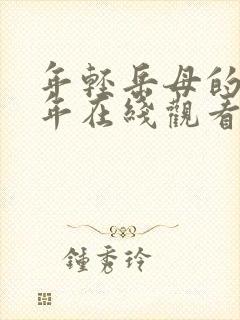 年轻岳母的
年在綫觀看
鍾秀玲